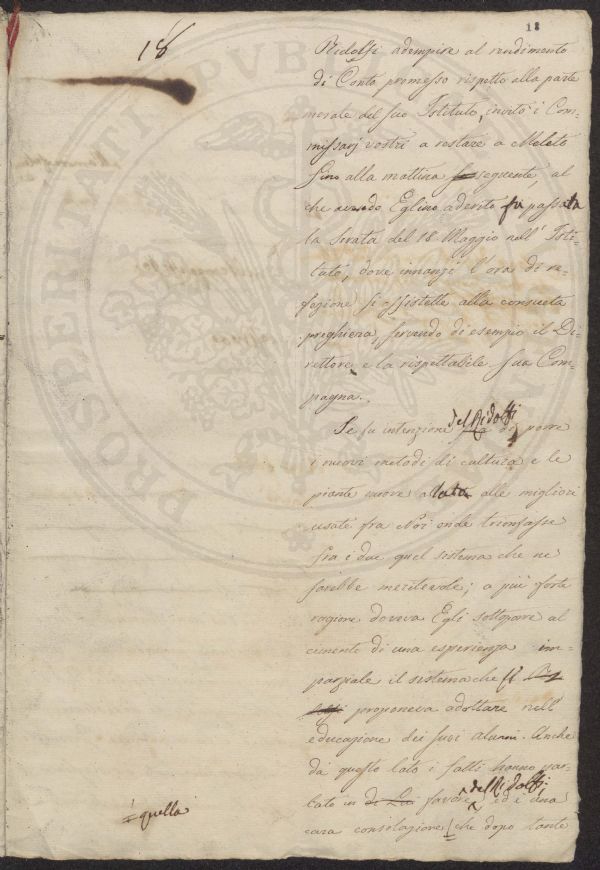 18
18
Ridolfi adempire al rendimento
di Conto promesso rispetto alla parte
morale del suo Istituto, invitò i Com-
missarj vostri a restare a Meleto
fino alla mattina seguente, al
che avendo Eglino aderito fu passata
la Serata del 18 Maggio nell' Isti-
tuto, dove innanzi l'ora di re-
fezione si assistette alla consueta
preghiera, servendo di esempio il Di-
rettore e la rispettabile sua Com-
pagna.
Se fu intenzione del Ridolfi di porre
i nuovi metodi di cultura e le
piante nuove a lato alle migliori
usate fra Noi onde trionfasse
fra i due quel sistema che ne
sarebbe meritevole; a più forte
ragione doveva Egli sottoporre al
cimento di una esperienza im-
parziale il sistema che si
proponeva adottare nell'
educazione dei suoi alunni. Anche
da questo lato i fatti hanno par-
lato in favore del Ridolfi, ed è una
cara consolazione che dopo tante
= quella
PROSPERITATI PUBLICAE